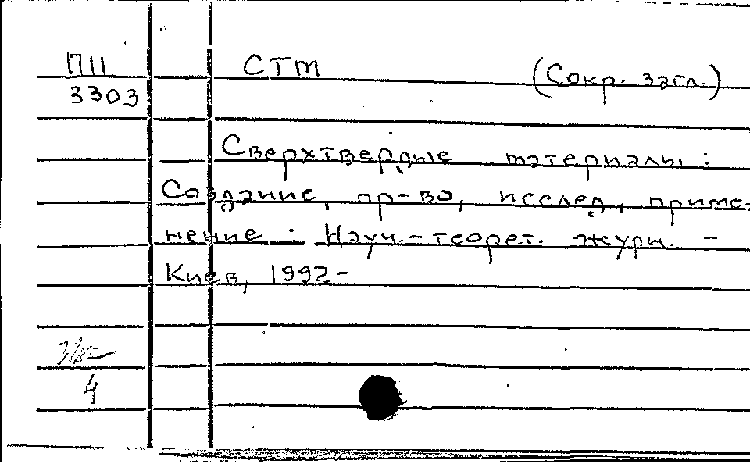 П11 СТМ (Сокр. загл.)
3303
Сверхтвердые материалы:
Создание, пр-во, исслед., приме-
нение : Науч.-теорет. журн. –
Киев, 1992-
4